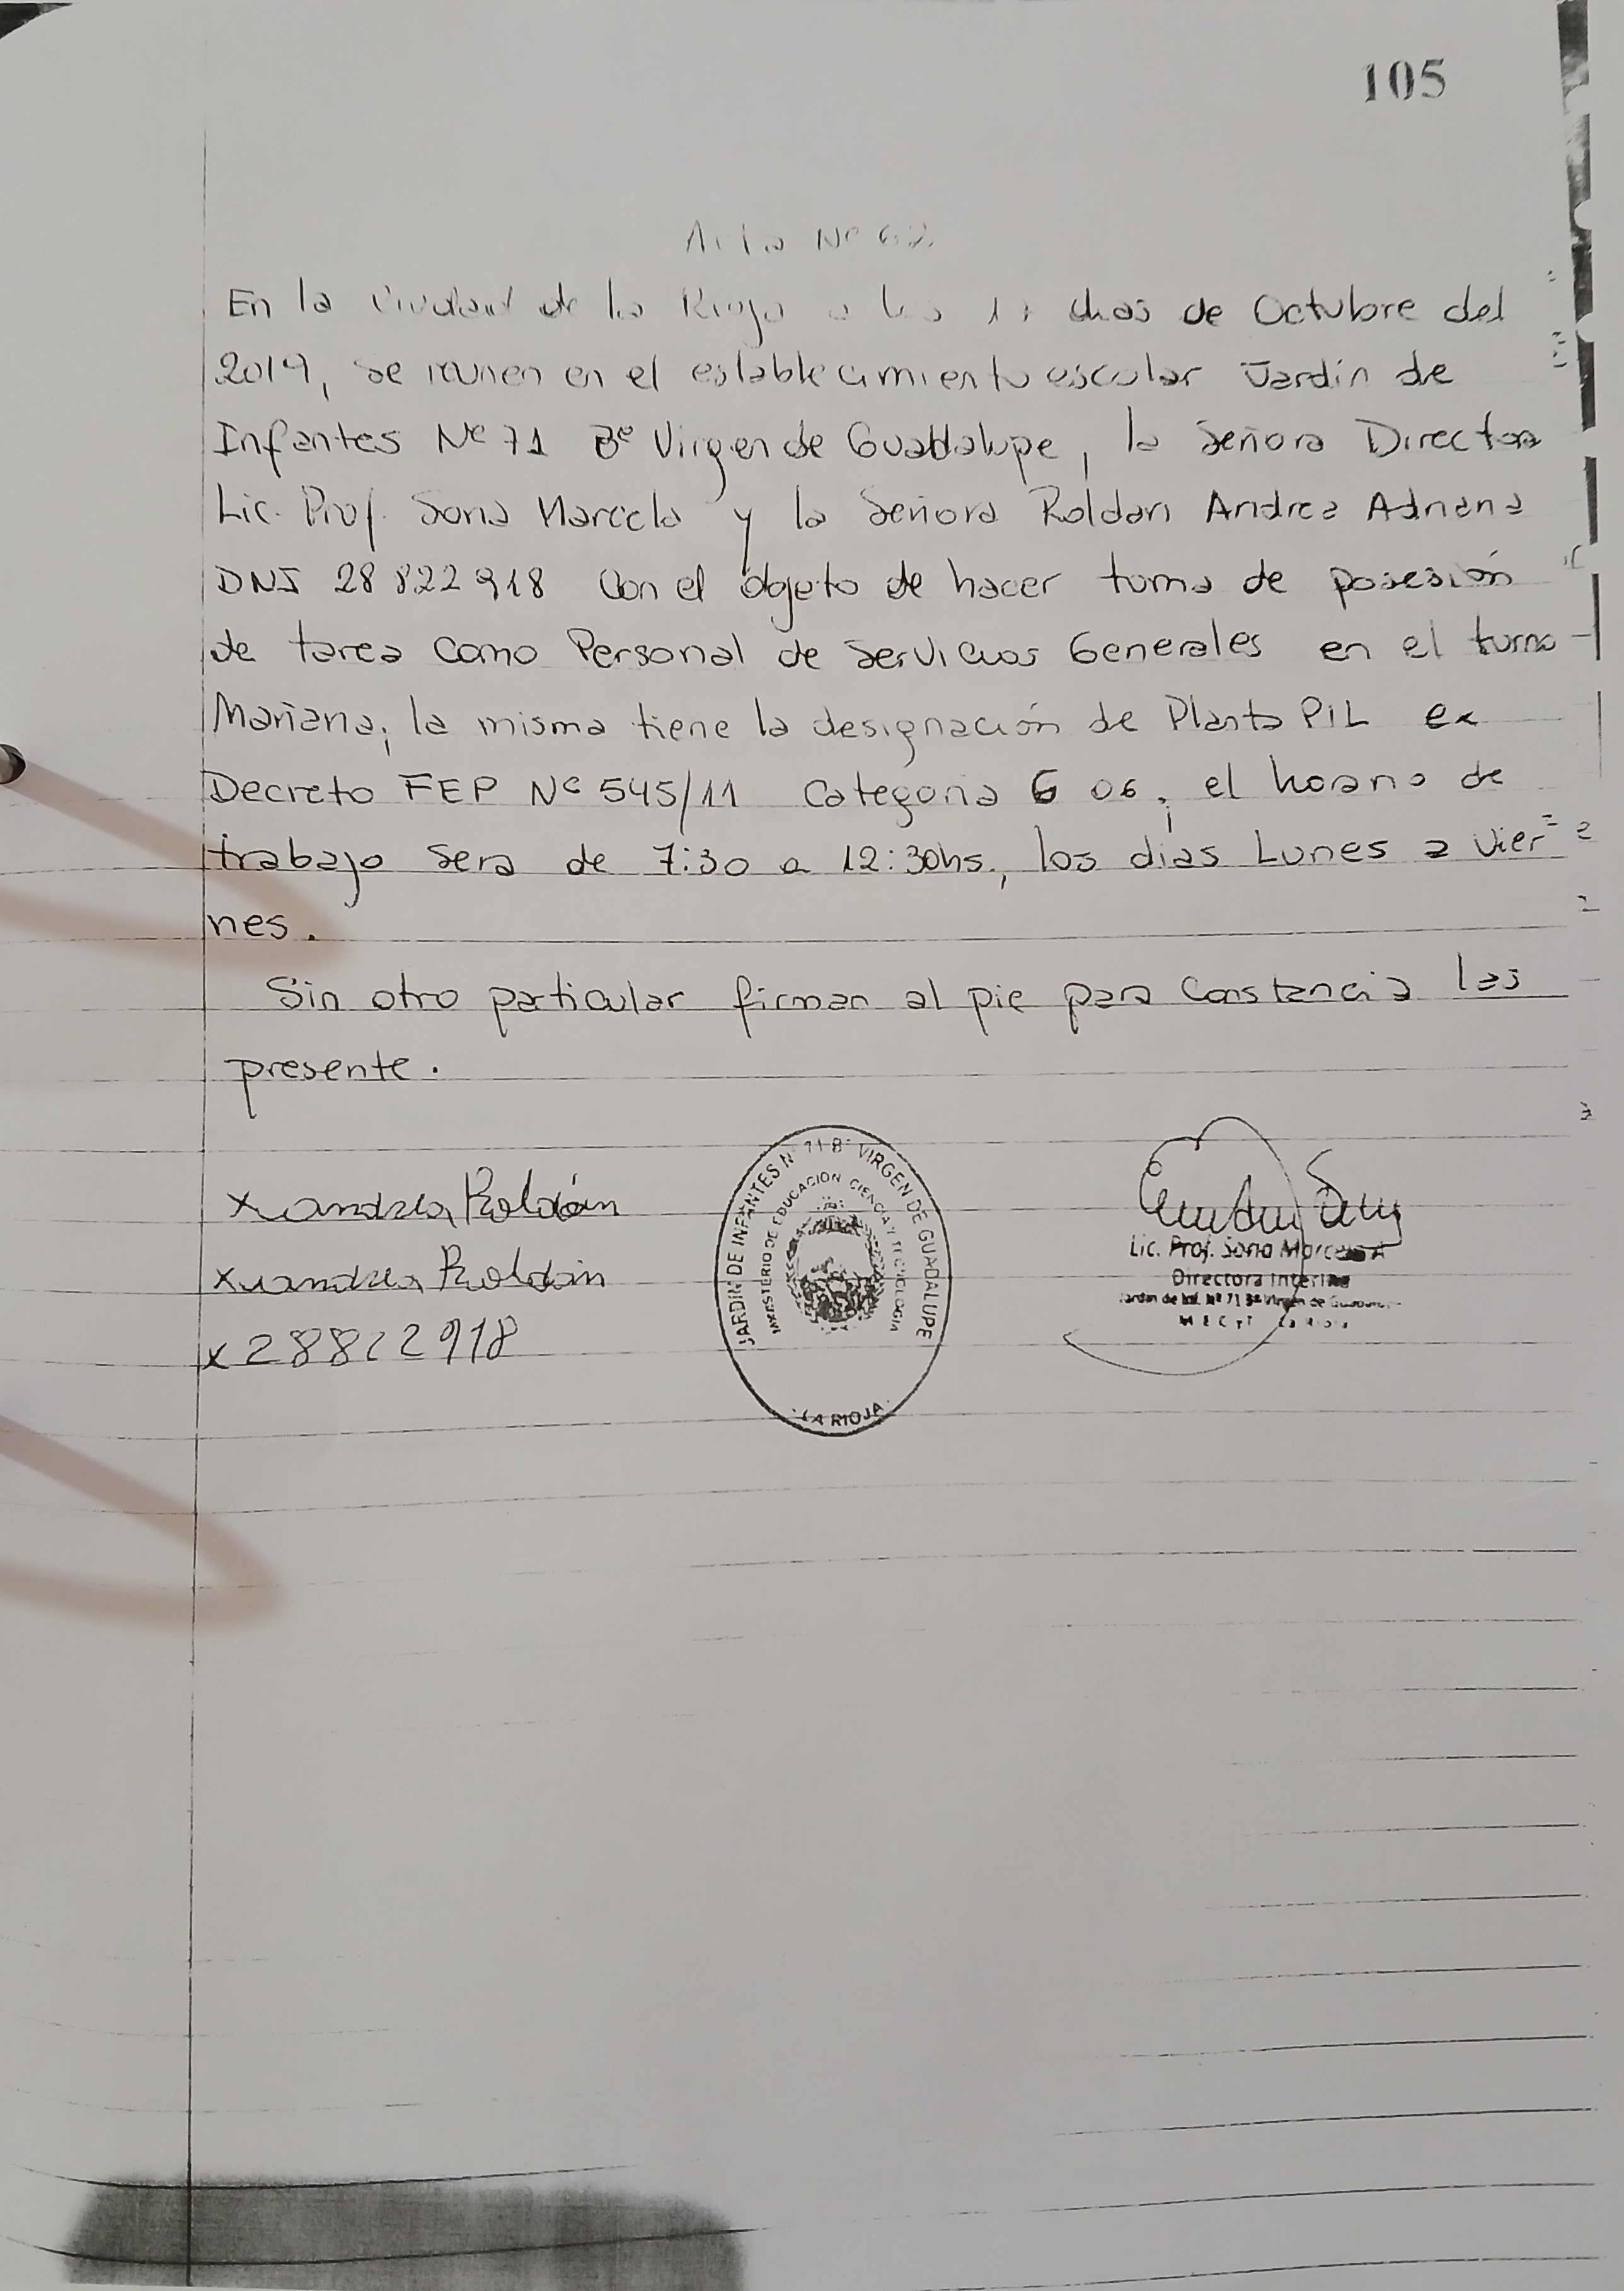 105
Acta Nº 62
En la Ciudad de la Rioja a los dias de Octubre del
2019, se reunen en el establecimiento escolar Jardín de
Infantes Nº 71 Bº Virgen de Guadalupe, la Señora Directora
Lic. Prof. Soria Marcela y la Señora Roldan Andrea Adriana
DNI 28 822 918 Con el objeto de hacer toma de posesión
de tarea como Personal de Servicios Generales en el turno
Mañana; la misma tiene la designación de Planta PIL ex
Decreto FEP Nº 545/11 Categoria 6 06; el horario de
trabajo sera de 7:30 a 12:30hs., los dias Lunes a Vier=
nes.
Sin otro particular firman al pie para Constancia las
presente.
x Andrea Roldán
x Andrea Roldán
x 28822918
JARDIN DE INFANTES Nº 71 Bº VIRGEN DE GUADALUPE
MINISTERIO DE EDUCACION CIENCIA Y TECNOLOGIA
LA RIOJA
Lic. Prof. Soria Marcela A
Directora Interina
Jardín de Inf. Nº 71 Bº Virgen de Guadalupe
M E C y T La Rioja